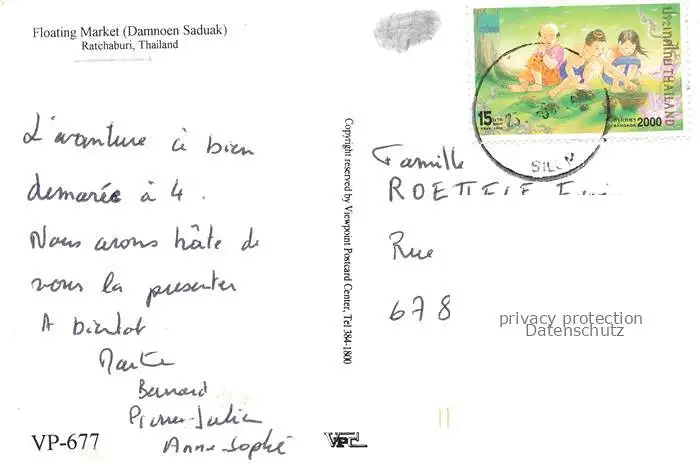 Floating Market (Damnoen Saduak)
Ratchaburi, Thailand
L'avanture à bien
demarée à 4.
Nous avons hâte de
vous la presenter
A bientot
Bernard
Pierre-Julien
Anne-Sophie
VP-677
Copyright reserved by Viewpoint Postcard Center, Tel 384-1800
VPC
ประเทศไทย THAILAND
15 บาท
BANGKOK 2000
Famille
Rue
678
privacy protection
Datenschutz